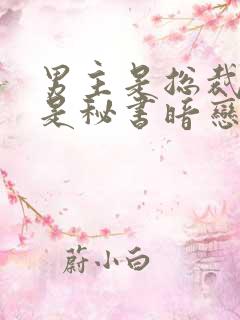 男主是总裁
是秘书暗恋
蔚小白